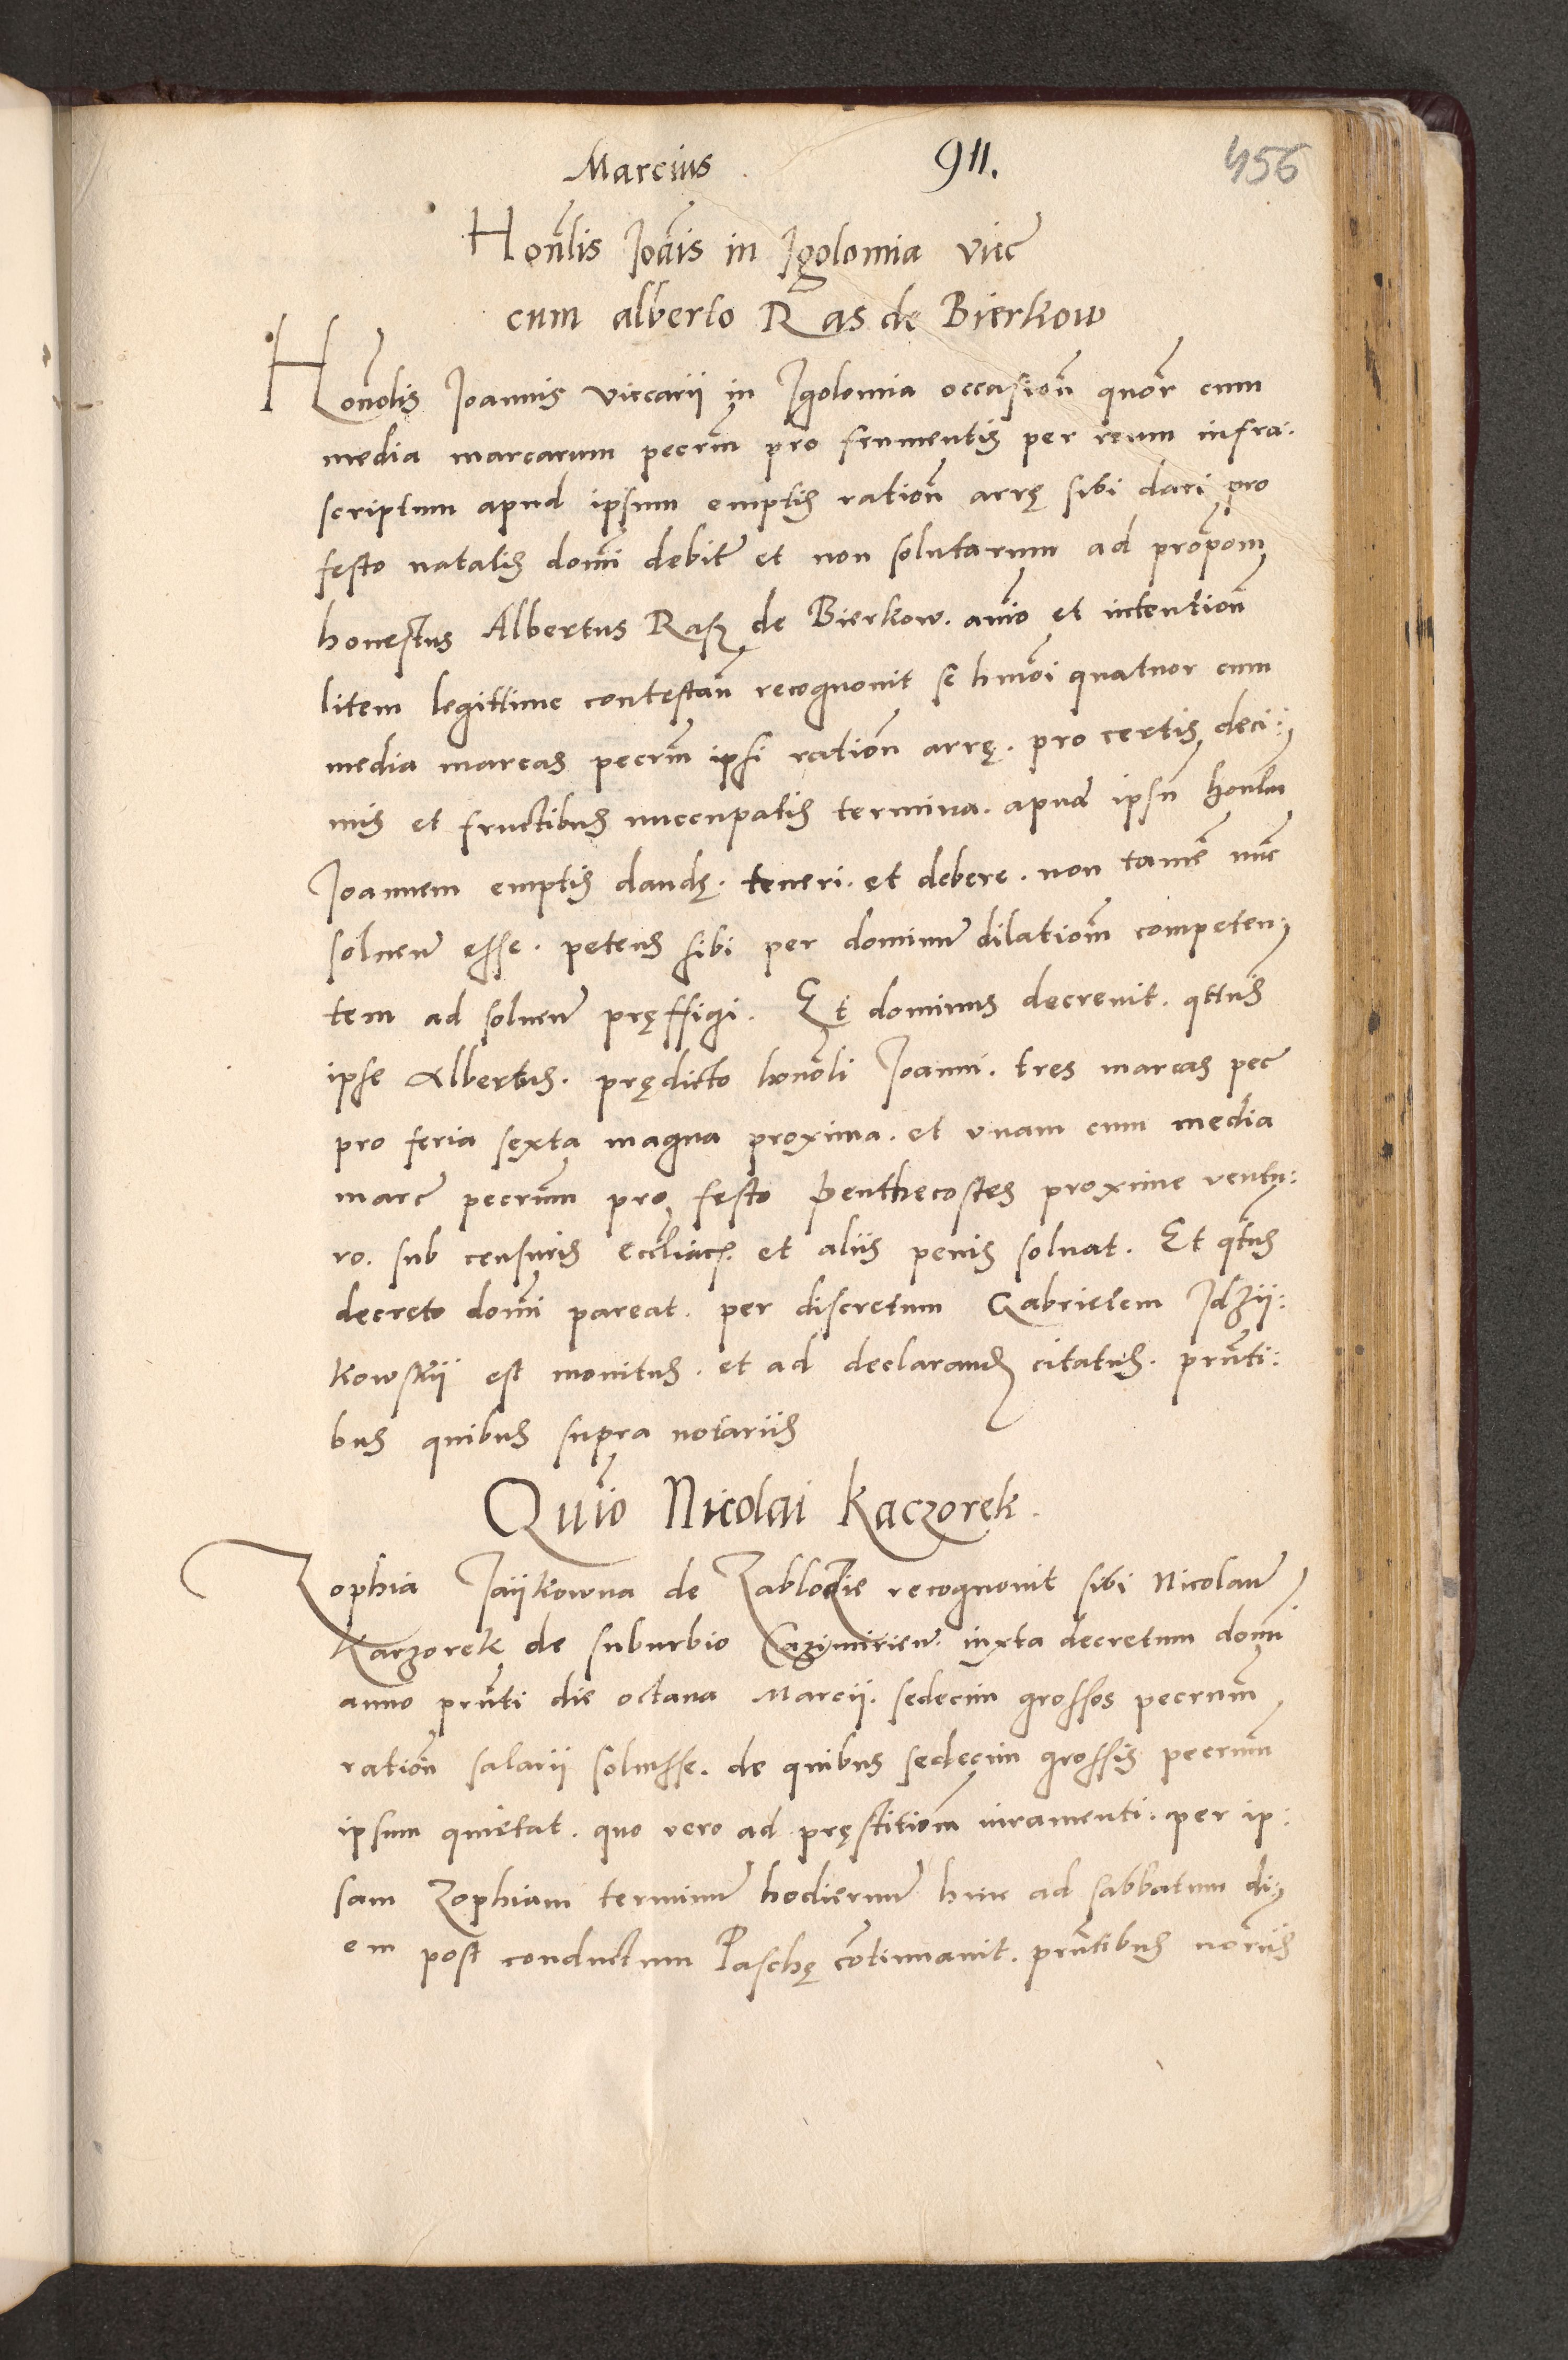 Marcius. 911. 456
Hon̄lis Joāis in Jgolomia viic̄
cum alberto Ras de Bierkow
Honōlis Joannis viccarii in Jgolomia occasioñ quōr cum
media marcarum pecrīn pro frumentis per reum infra:
scriptum apud ipsum emptis ratioñ arrę sibi dari pro
festo natalis domī debit̄ et non solutarum ad proposm̄
honestus Albertus Rasz de Bierkow. anīo et intentioñ
litem legittime contestañ recognouit se hmōi quatuor cum
media marcas pecrīn ipsi ratioñ arrę. pro certis deci:
mis et fructibus nuccupatis termina. apud ipsū honōlm
Joannem emptis dandę. teneri. et debere. non tamē nūc
soluen̄ esse. petens sibi per dominū dilatioñm competen:
tem ad soluen̄ pręffigi. Et dominus decreuit. qttūs
ipse Albertus. prędicto honōli Joanni. tres marcas pec̄
pro feria sexta magna proxima. et vnam cum media
marc̄ pecrum̄ pro festo penthecostes proxime ventu:
ro. sub censuris eccliac̄. et aliis penis soluat. Et qt̄us
decreto domī pareat. per discretum Gabrielem Jdzii:
kowskii est monitus. et ad declarand citatus. prn̄ti:
bus quibus supra notariis
Quio Nicolai Kaczorek.
Zophia Jaiikowna de Zablodzie recognouit sibi Nicolaū
Kaczorek de suburbio Cazimirien̄. iuxta decretum domī
anno prn̄ti die octaua Marcii. sedecim grossos pecrum̄
ratioñ salarii soluisse. de quibus sedecim grossis pecrum̄
ipsum quietat. quo vero ad pręstitioñm iuramenti. per ip:
sam Zophiam terminū hodiernū hinc ad sabbatum di:
em post conductum Paschę cōtinuauit. prn̄tibus nōriis